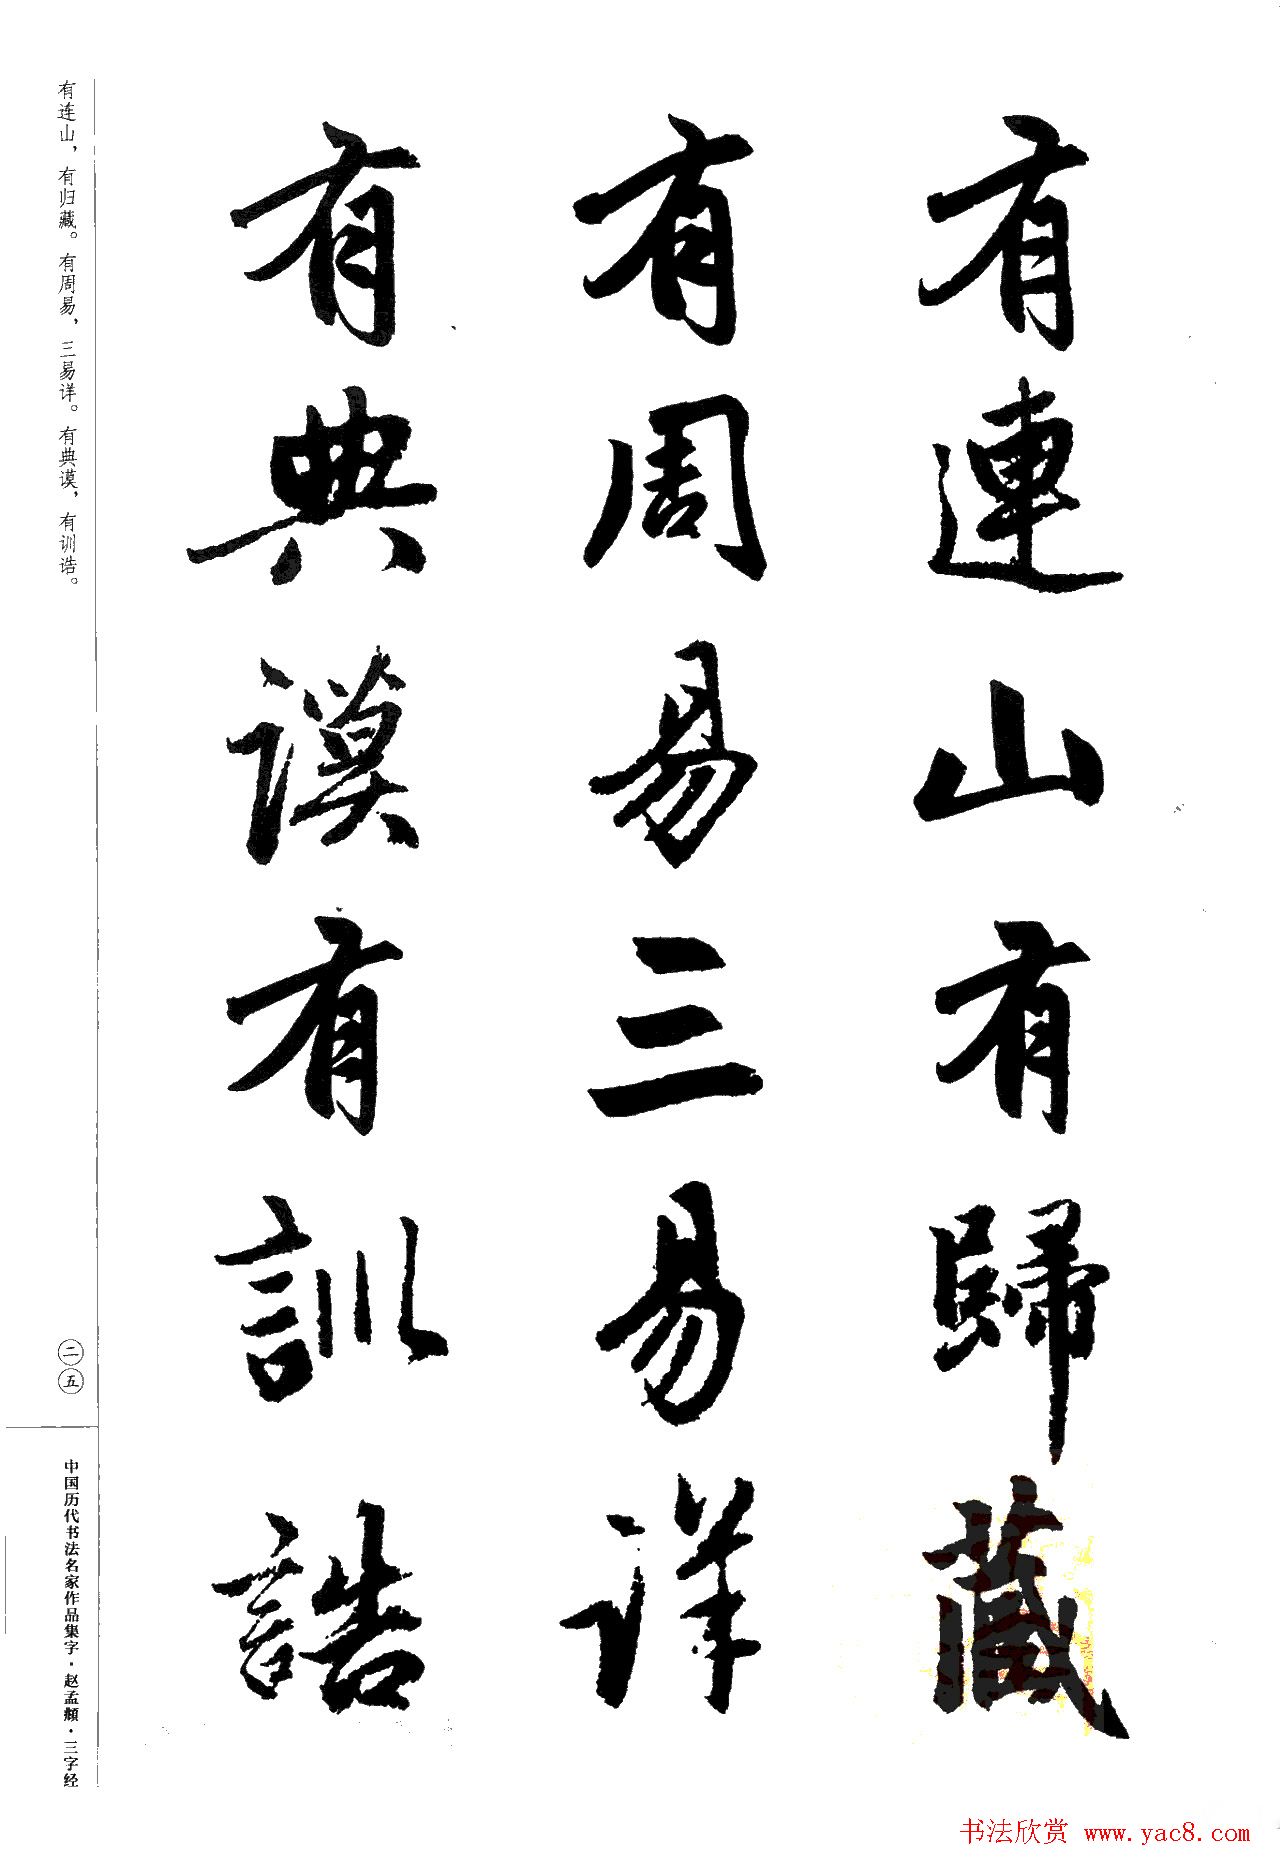 有連山有歸藏
有周易三易詳
有典謨有訓誥
有连山，有归藏。有周易，三易详。有典谟，有训诰。
二五
中国历代书法名家作品集字·赵孟頫·三字经
书法欣赏 www.yac8.com